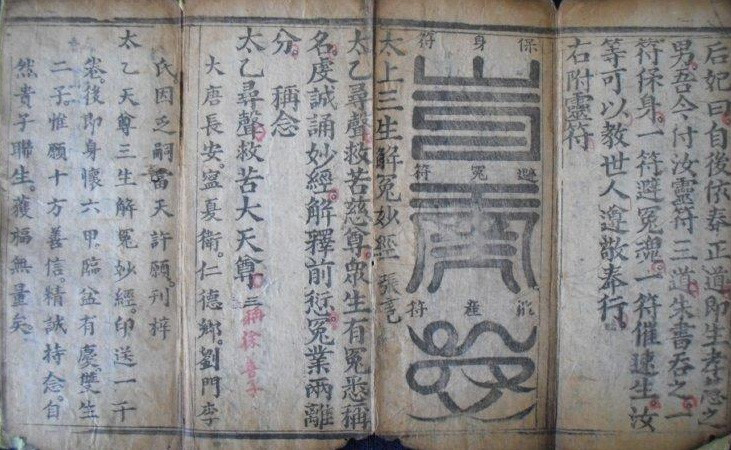 后妃曰自後依奉正道即生孝慈之
男。吾今付汝靈符三道。朱書吞之。一
符保身。一符避冤魂。一符催速生。汝
等可以教世人遵敬奉行。
右附靈符
保身符
避冤符
產符
太上三生解冤妙經 張
太乙尋聲救苦慈尊。眾生有冤悉稱
名。虔誠誦妙經。解釋前愆冤業兩離
分 稱念
太乙尋聲救苦大天尊 三稱
大唐長安。寍夏衛。仁德鄉。劉門李
氏因乏嗣當天許願。刊梓
太乙天尊三生解冤妙經。印送一千
卷。後即身懷六甲。臨盆有慶。雙生
二子。惟願十方善信。精誠持念。自
然貴子聯生。獲福無量矣。